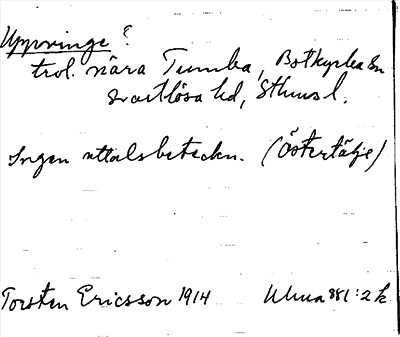 Uppvinge?
trol. nära Tumba, Botkyrka sn
Svartlösa hd, Sthms l.
Ingen uttalsbeteckn. (Östertälje)
Torsten Ericsson 1914 Ulma 881:2 k